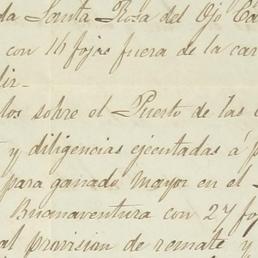 da Santa Rosa del Ojo Ca
con 16 fojas fuera de la car
dir.
tos sobre el Puerto de las
y diligencias ejecutadas á p
para ganado mayor en el
Buenaventura con 27 foj
al provision de remate y